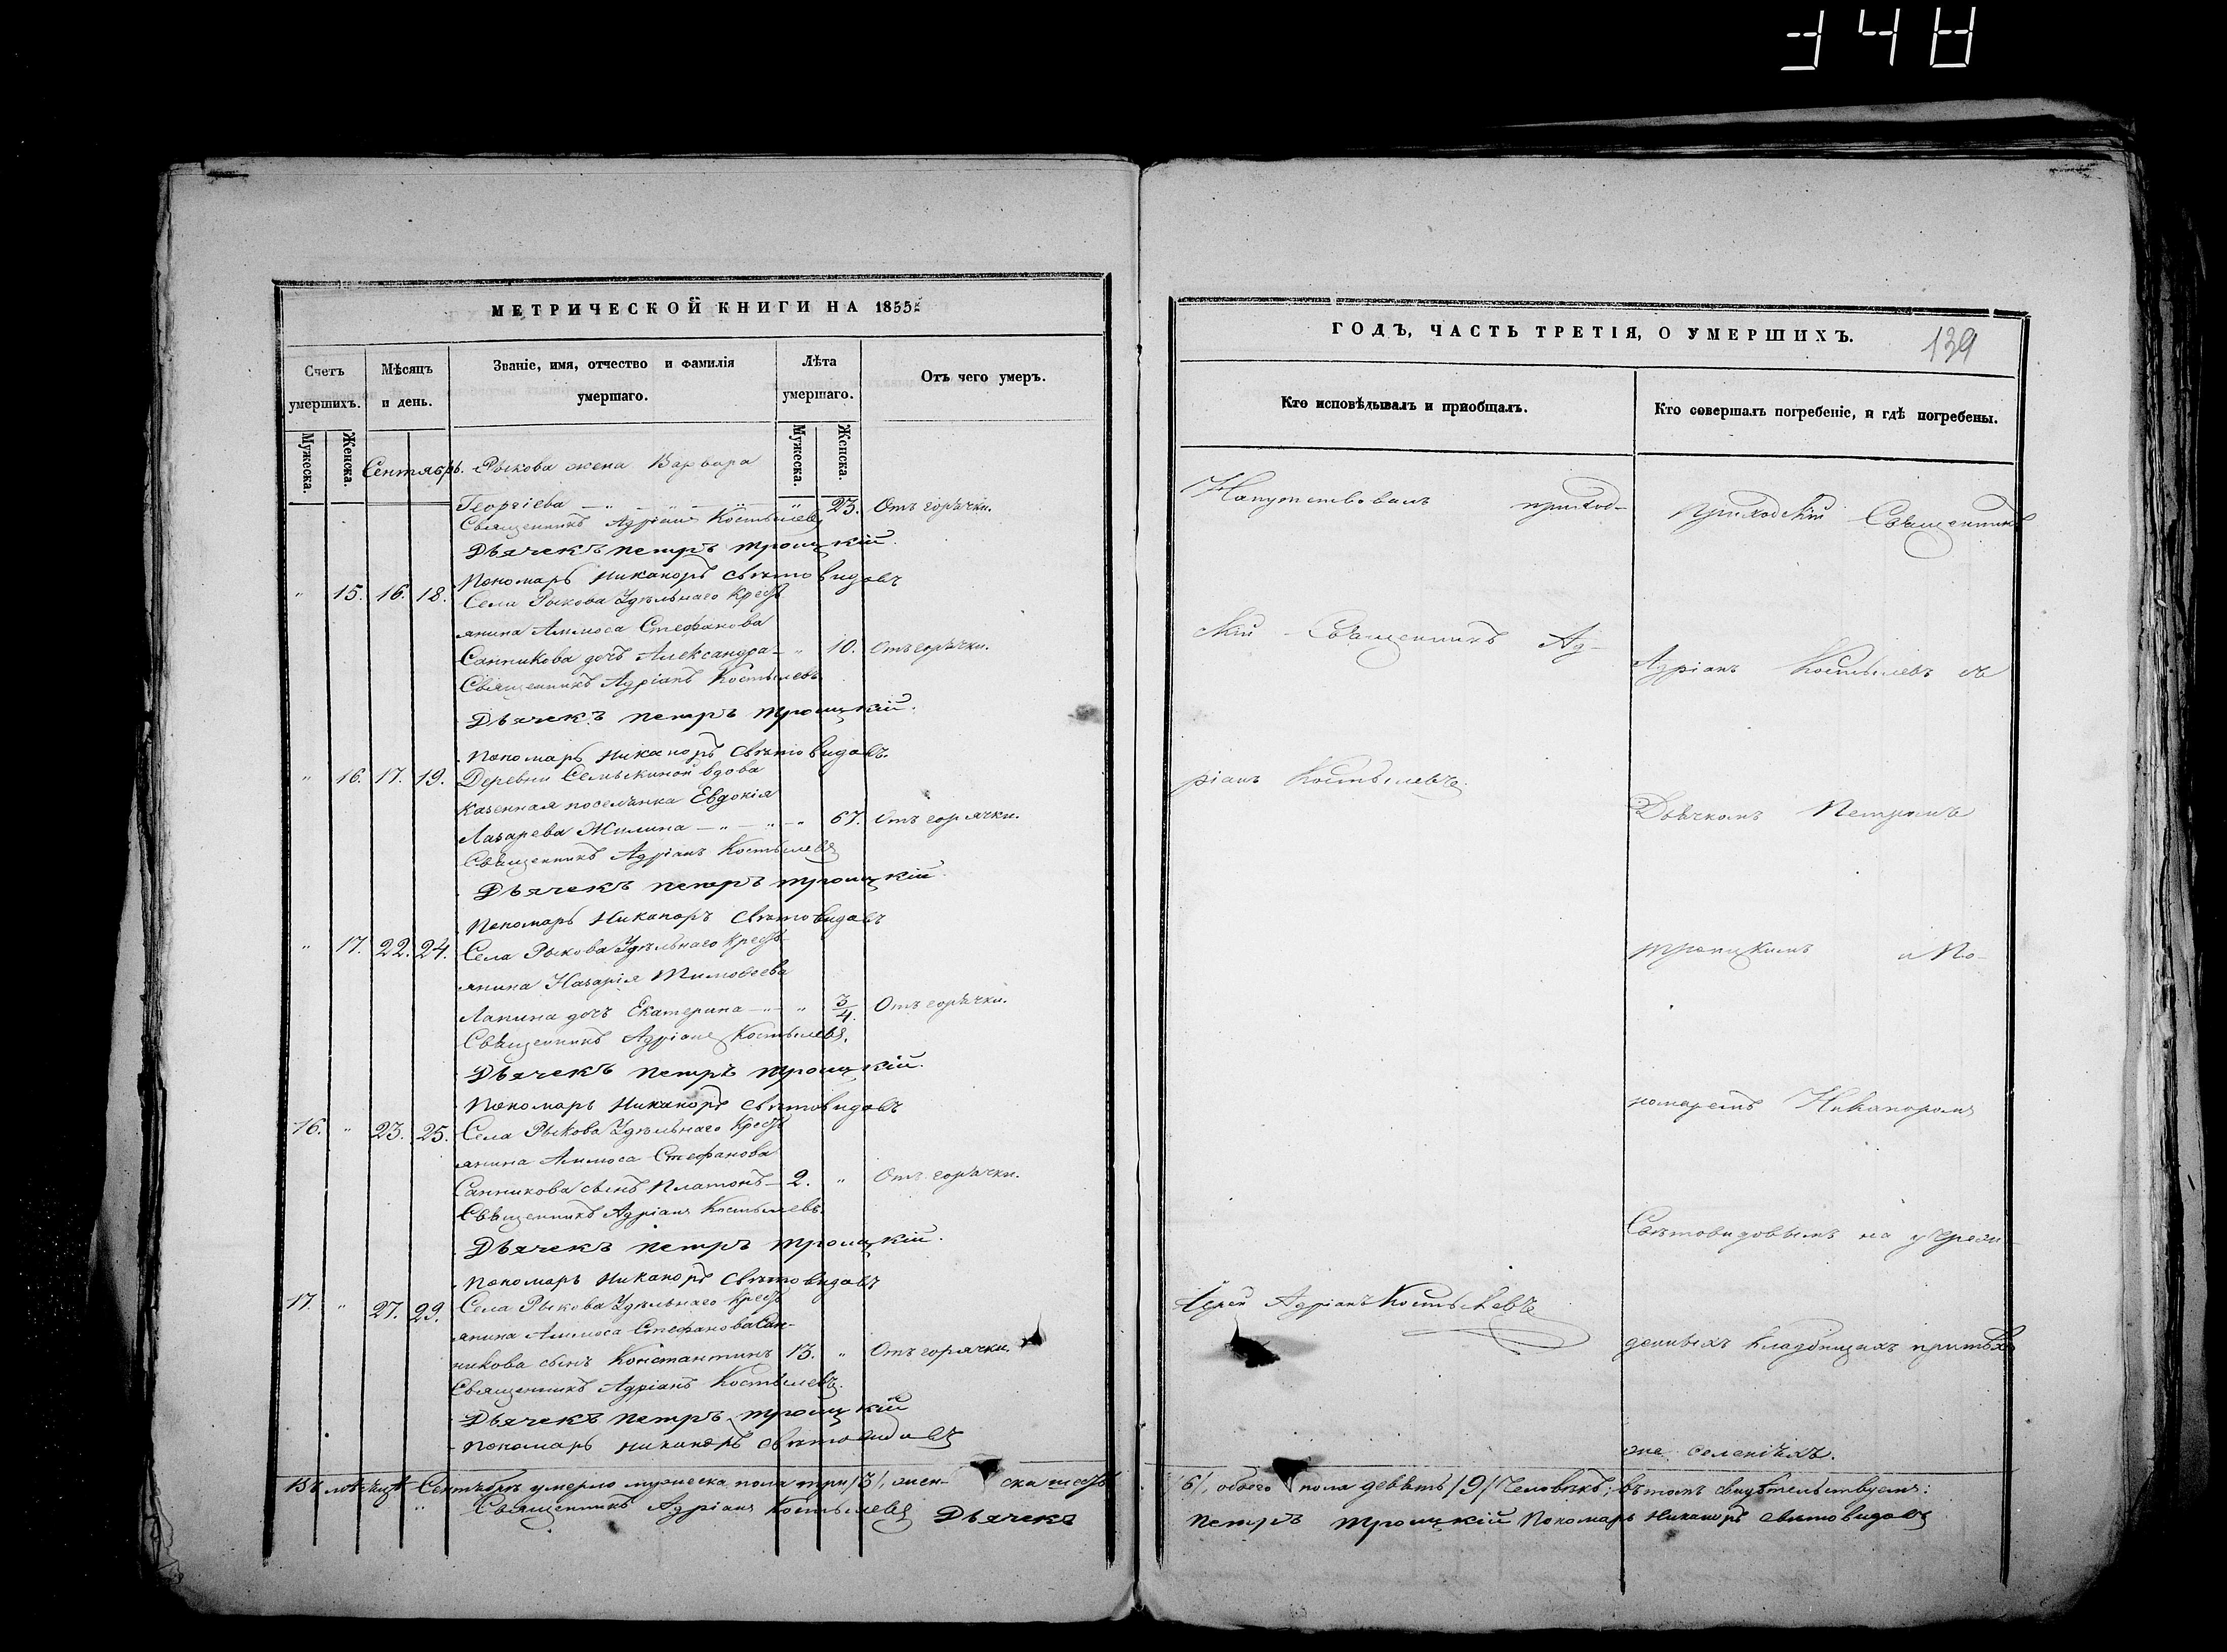 348
МЕТРИЧЕСКОЙ КНИГИ НА 1855
Счетъ умершихъ.
Мѣсяцъ и день.
Званіе, имя, отчество и фамилія умершаго.
Лѣта умершаго.
Отъ чего умеръ.
Мужеска.
Женска.
Мужеска.
Женска.
Сентябрь. Рыкова жена Варвара
Георгіева — „ — „ — „ 23. Отъ горячки.
Священникъ Адріанъ Костылевъ
Дьячекъ Петръ Троицкій.
Пономарь Никаноръ Свѣтовидовъ
„ 15. 16. 18. Села Рыкова Удѣльнаго Кресть
янина Аммоса Стефанова
Санникова дочь Александра — „ 10. Отъ горячки.
Священникъ Адріанъ Костылевъ.
Дьячекъ Петръ Троицкій.
Пономарь Никаноръ Свѣтовидовъ.
„ 16. 17. 19. Деревни Семыкиной вдова
казенная поселянка Евдокія
Лазарева Жилина — „ — „ — „ 67. Отъ горячки.
Священникъ Адріанъ Костылевъ
Дьячекъ Петръ Троицкій.
Пономарь Никаноръ Свѣтовидовъ
„ 17. 22. 24. Села Рыкова Удѣльнаго Кресть
янина Назарія Тимовеева
Лапина дочь Екатерина — „ — „ 3/4. Отъ горячки.
Священникъ Адріанъ Костылевъ.
Дьячекъ Петръ Троицкій.
Пономарь Никаноръ Свѣтовидовъ
16. „ 23. 25. Села Рыкова Удѣльнаго Кресть
янина Аммоса Стефанова
Санникова сынъ Платонъ — 2. „ Отъ горячки.
Священникъ Адріанъ Костылевъ.
Дьячекъ Петръ Троицкій.
Пономарь Никаноръ Свѣтовидовъ
17. „ 27. 29. Села Рыкова Удѣльнаго Кресть
янина Аммоса Стефанова Сан-
никова сынъ Константинъ 13. „ Отъ горячки.
Священникъ Адріанъ Костылевъ.
Дьячекъ Петръ Троицкій
Пономарь Никаноръ Свѣтовидовъ
Въ мѣсяцѣ Сентябрѣ умерло мужеска пола три /3/, жен- ска шесть
Священникъ Адріанъ Костылевъ Дьячекъ
ГОДЪ, ЧАСТЬ ТРЕТІЯ, О УМЕРШИХЪ.
139
Кто исповѣдывалъ и пріобщалъ.
Кто совершалъ погребеніе, и гдѣ погребены.
Напутствовалъ приход-
скій Священникъ Ад-
ріанъ Костылевъ.
Іерей Адріанъ Костылевъ
Приходскій Священникъ
Адріанъ Костылевъ съ
Дьячкомъ Петромъ
Троицкимъ и По-
номаремъ Никаноромъ
Свѣтовидовымъ на учреж-
денныхъ кладбищахъ при тѣхъ
же селеніяхъ.
/6/, обоего пола девять /9/ Человѣкъ; въ томъ свидѣтельствуемъ:
Петръ Троицкій Пономарь Никаноръ Свѣтовидовъ